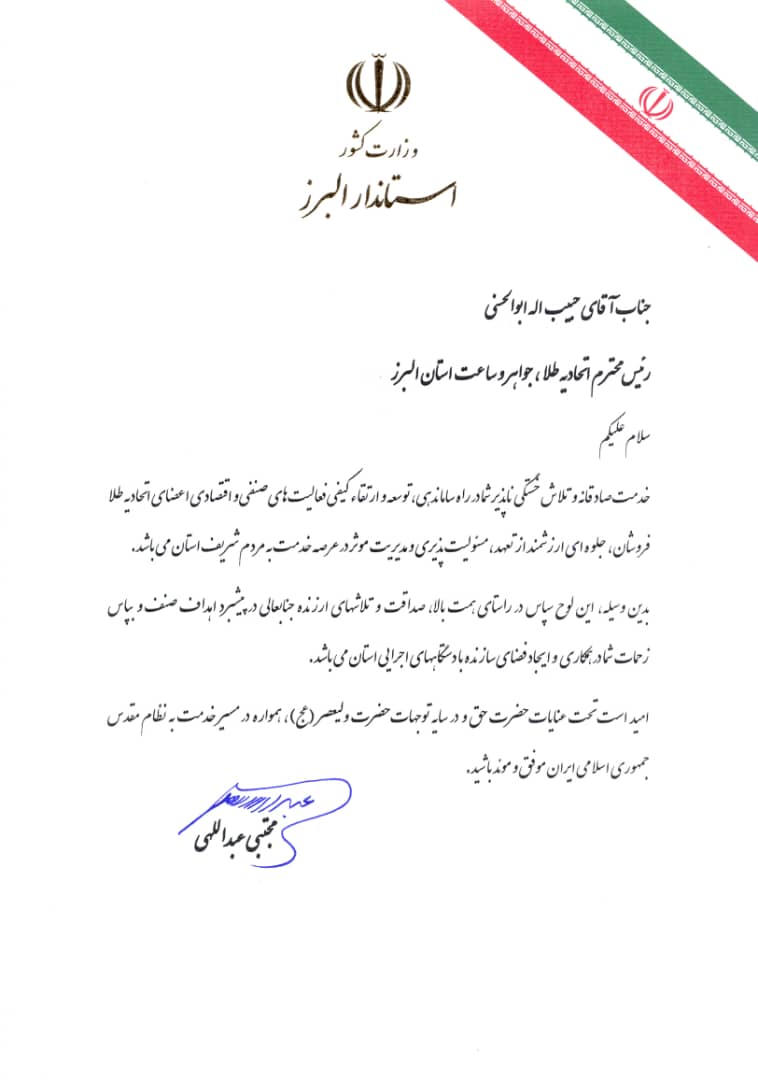 وزارت کشور
استاندار البرز
جناب آقای حبیب اله ابوالحسنی
رئیس محترم اتحادیه طلا، جواهر و ساعت استان البرز
سلام علیکم
خدمت صادقانه و تلاش خستگی ناپذیر شما در راه ساماندهی، توسعه و ارتقاء کیفی فعالیت های صنفی و اقتصادی اعضای اتحادیه طلا
فروشان، جلوه ای ارزشمند از تعهد، مسئولیت پذیری و مدیریت موثر در عرصه خدمت به مردم شریف استان می باشد.
بدین وسیله، این لوح سپاس در راستای همت بالا، صداقت و تلاشهای ارزنده جنابعالی در پیشبرد اهداف صنف و بپاس
زحمات شما در همکاری و ایجاد فضای سازنده با دستگاههای اجرایی استان می باشد.
امید است تحت عنایات حضرت حق و در سایه توجهات حضرت ولیعصر (عج)، همواره در مسیر خدمت به نظام مقدس
جمهوری اسلامی ایران موفق و موئد باشید.
مجتبی عبداللهی